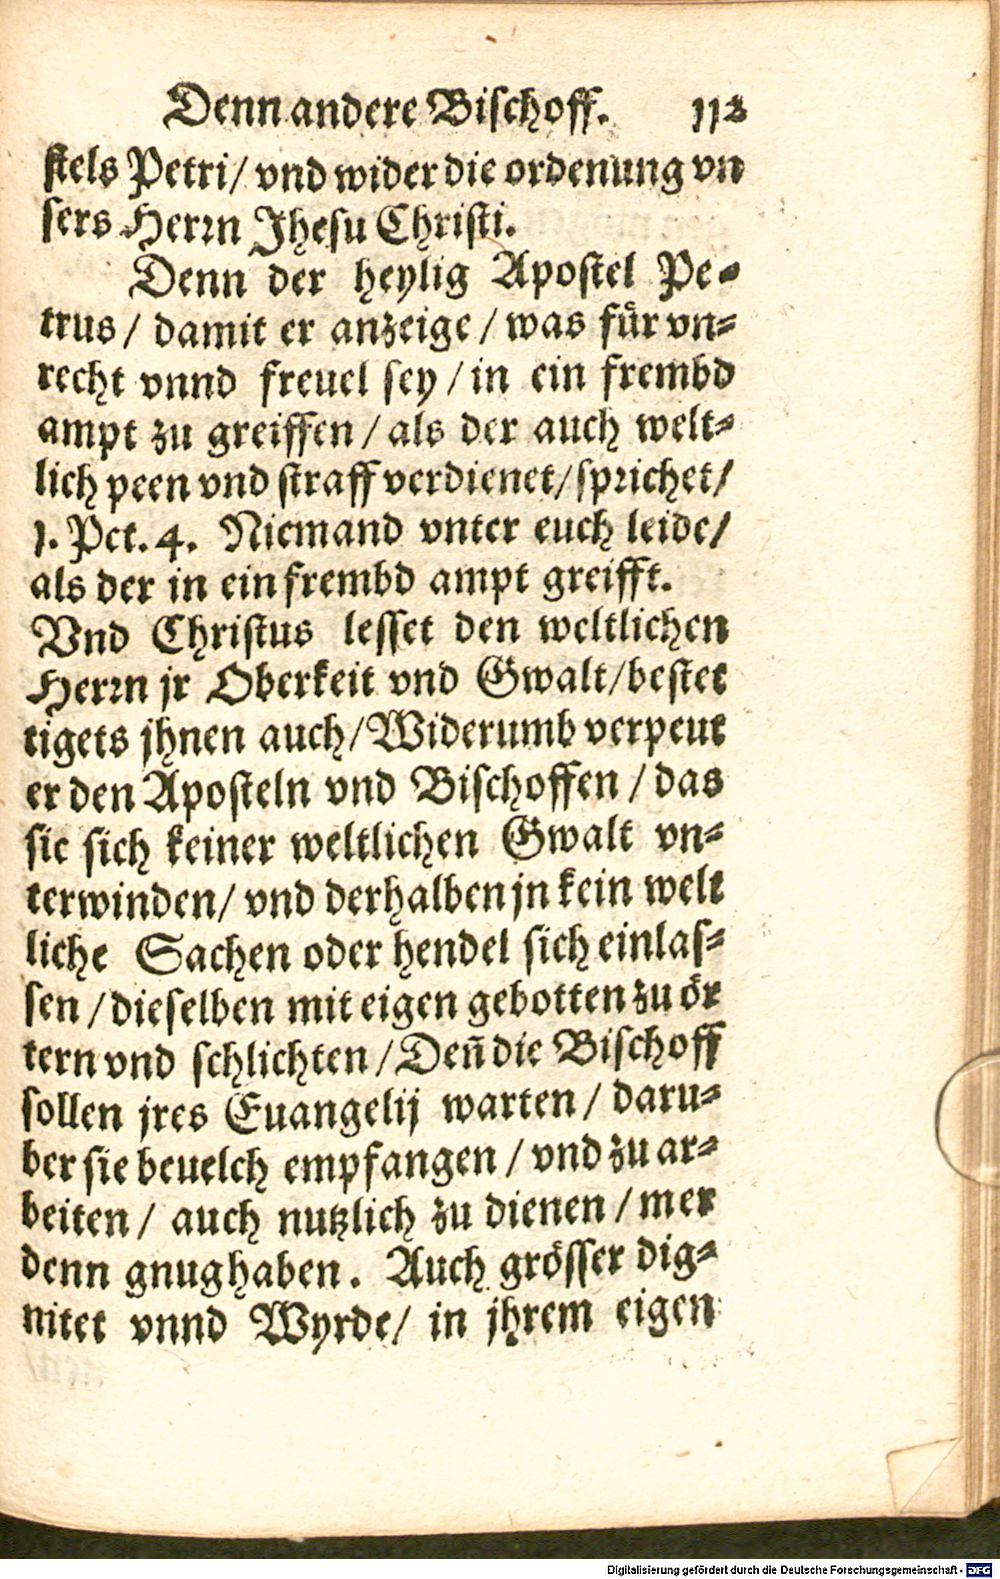 Denn andere Bischoff. 112
stels Petri/ vnd wider die ordenung vn
sers Herrn Jhesu Christi.
Denn der heylig Apostel Pe-
trus/ damit er anzeige/ was für vn-
recht vnnd freuel sey/ in ein frembd
ampt zu greiffen/ als der auch welt-
lich peen vnd straff verdienet/ sprichet/
1. Pet. 4. Niemand vnter euch leide/
als der in ein frembd ampt greifft.
Vnd Christus lesset den weltlichen
Herrn jr Oberkeit vnd Gwalt/ bestet
tigets jhnen auch/ Widerumb verpeut
er den Aposteln vnd Bischoffen/ das
sie sich keiner weltlichen Gwalt vn-
terwinden/ vnd derhalben jn kein welt
liche Sachen oder hendel sich einlas-
sen/ dieselben mit eigen gebotten zu ör
tern vnd schlichten/ Den̄ die Bischoff
sollen jres Euangelij warten/ daru-
ber sie beuelch empfangen/ vnd zu ar-
beiten/ auch nutzlich zu dienen/ mer
denn gnug haben. Auch grösser dig-
nitet vnnd Wyrde/ in jhrem eigen
Digitalisierung gefördert durch die Deutsche Forschungsgemeinschaft - DFG